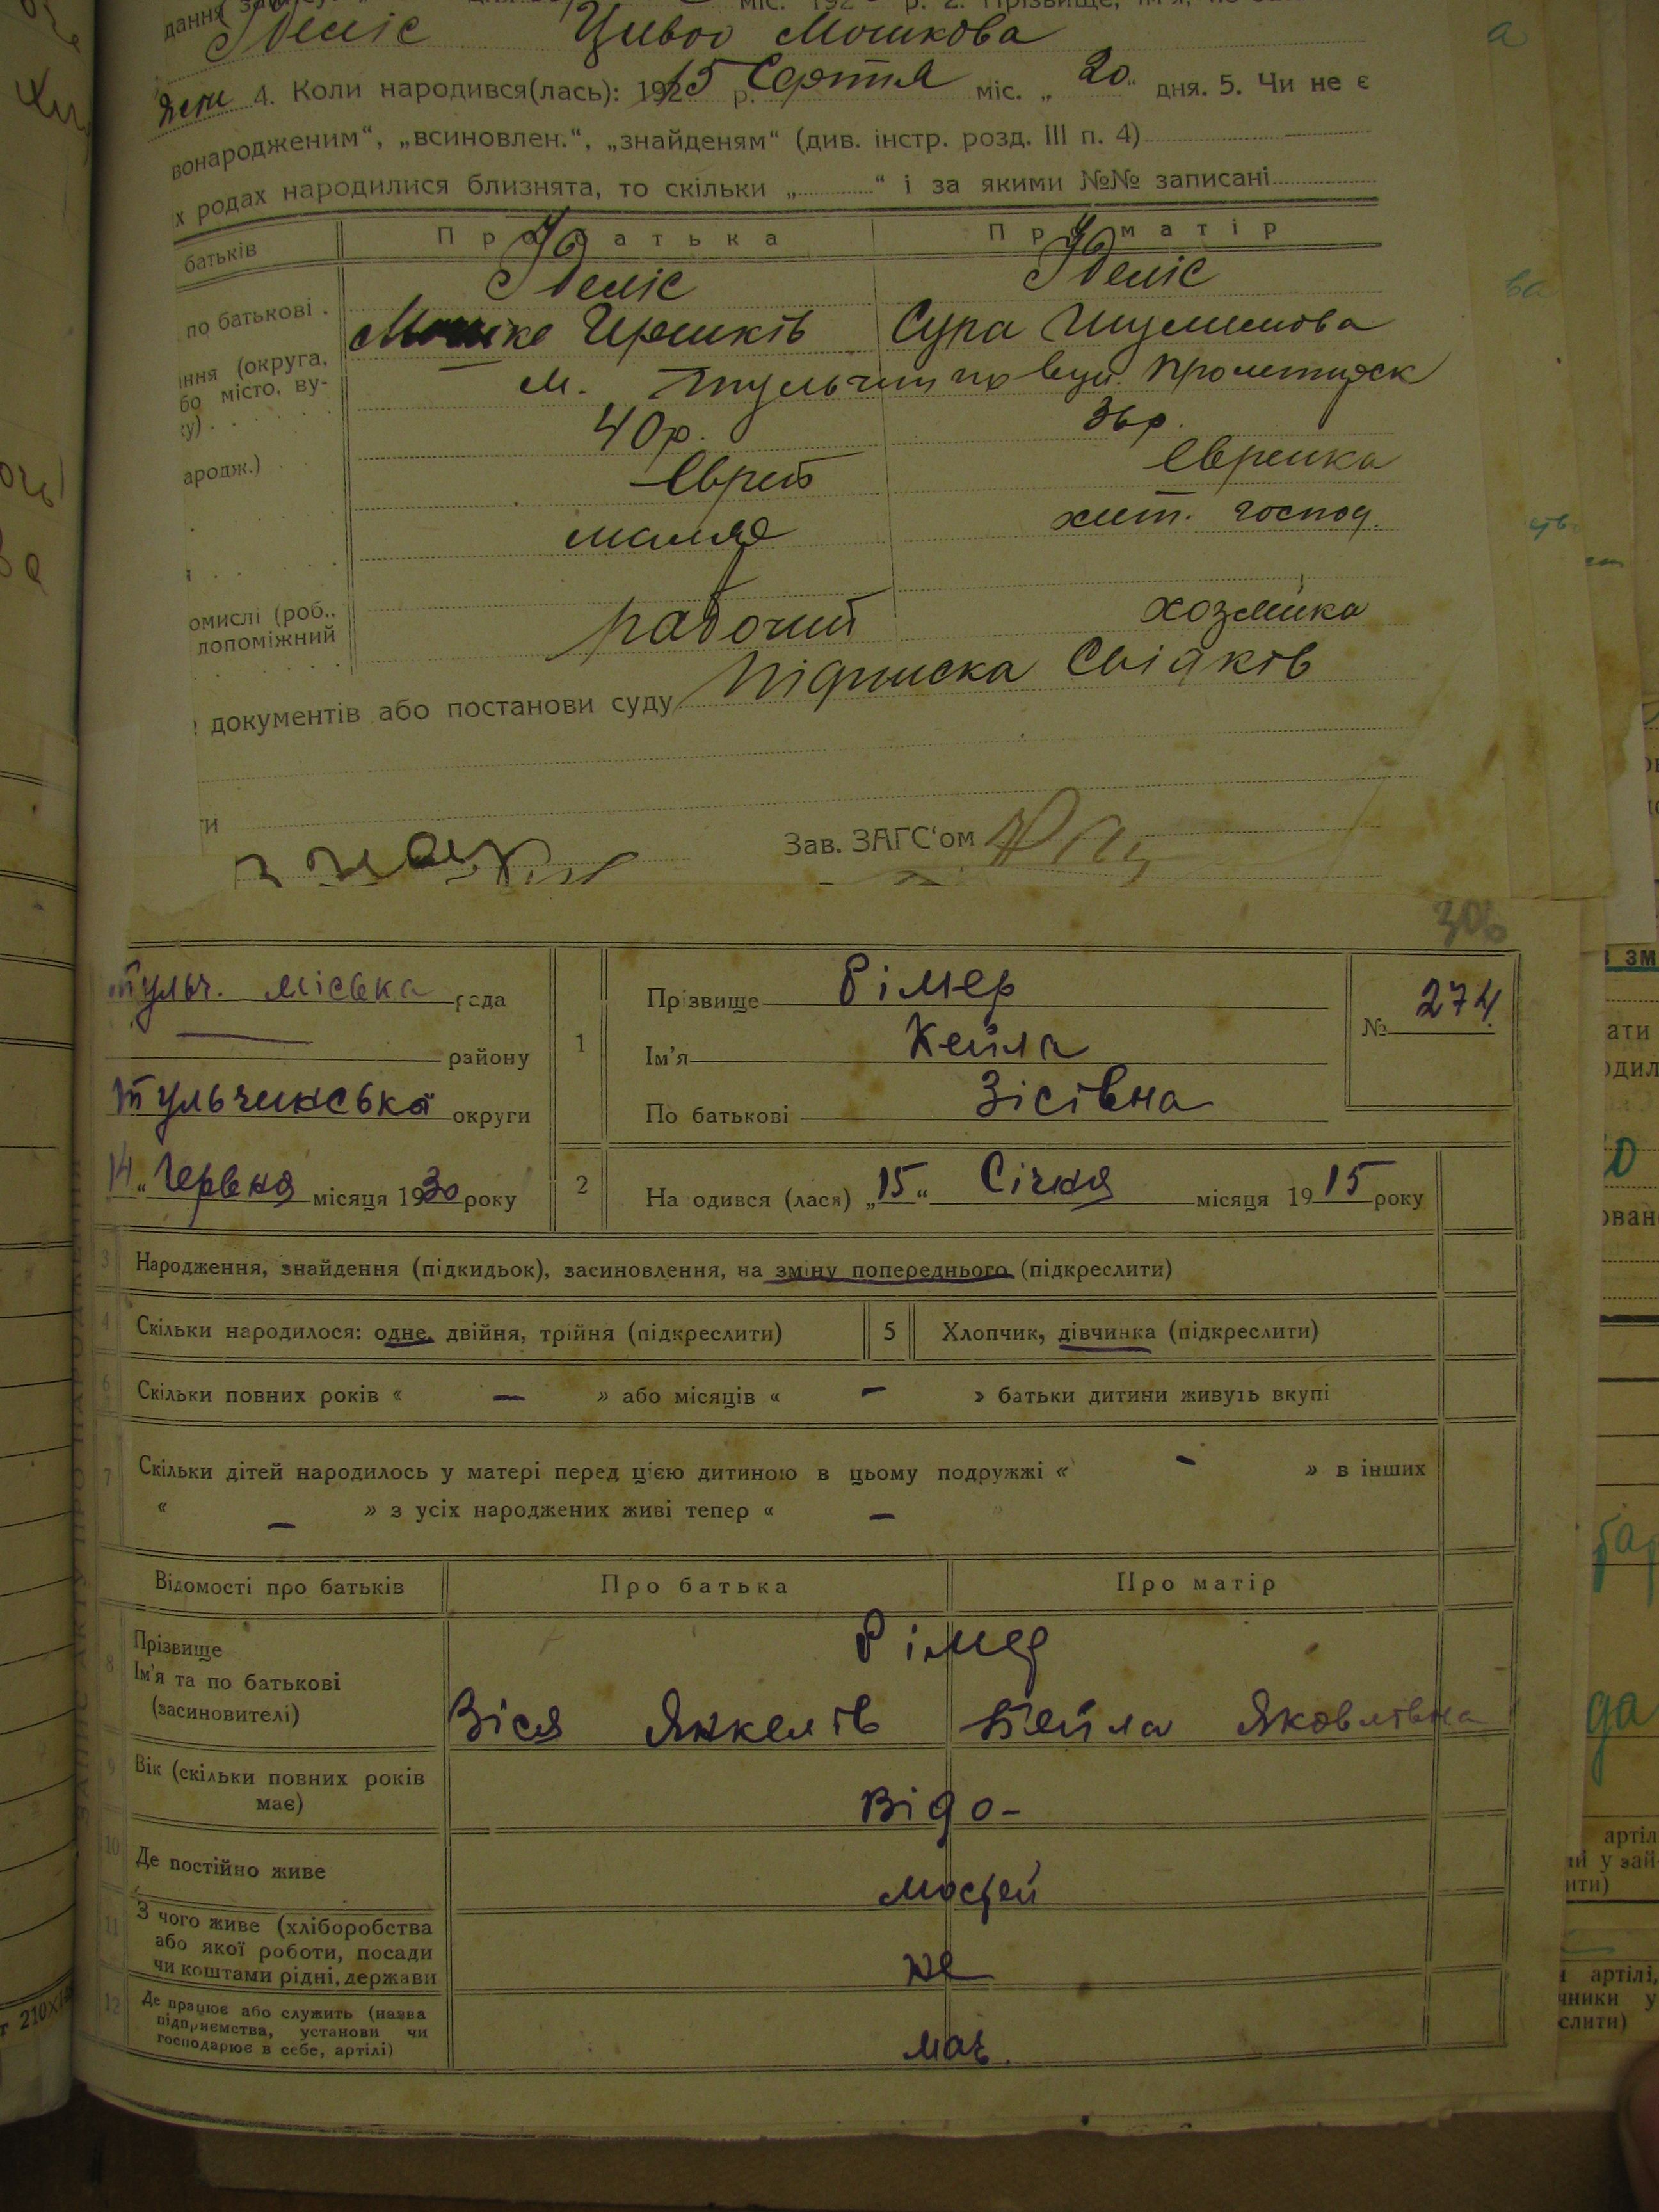 Цивоо Мошкова
4. Коли народився(лась): 1915 р. Серпня міс. „20“ дня. 5. Чи не є
вонародженим“, „всиновлен.“, „знайденям“ (див. інстр. розд. III п. 4)
х родах народилися близнята, то скільки „ “ і за якими №№ записані
батьків Про батька Про матір
по батькові .
Мошке Гершків Сура Шулимова
ння (округа,
бо місто, ву-
м. Тульчин по вул.
у) .
40 р. 36 р.
ародж.)
Еврей Еврейка
маляр хат. господ.
омислі (роб.,
допоміжний
рабочий хозяйка
документів або постанови суду Підписка Свідків
ти
Зав. ЗАГС‘ом
306
Тульч. міська рада
району
Тульчинська округи
14 „ Червня місяця 1930 року
1
Прізвище Рімер
Ім’я Кейла
По батькові Зісівна
№ 274
2 На одився (лася) „15“ Січня місяця 1915 року
3 Народження, знайдення (підкидьок), засиновлення, на зміну попереднього (підкреслити)
4 Скільки народилося: одне, двійня, трійня (підкреслити) 5 Хлопчик, дівчинка (підкреслити)
6 Скільки повних років « — » або місяців « — » батьки дитини живуть вкупі
7 Скільки дітей народилось у матері перед цією дитиною в цьому подружжі « — » в інших
« — » з усіх народжених живі тепер « —
Відомості про батьків Про батька Про матір
8 Прізвище
Ім’я та по батькові
(засиновителі)
Рімер
Зіся Янкелів Бейла Яковлівна
9 Вік (скільки повних років
має)
Відо-
10 Де постійно живе
мостей
11 З чого живе (хліборобства
або якої роботи, посади
чи коштами рідні, держави
не
12 Де працює або служить (назва
підприємства, установи чи
господарює в себе, артілі)
має.